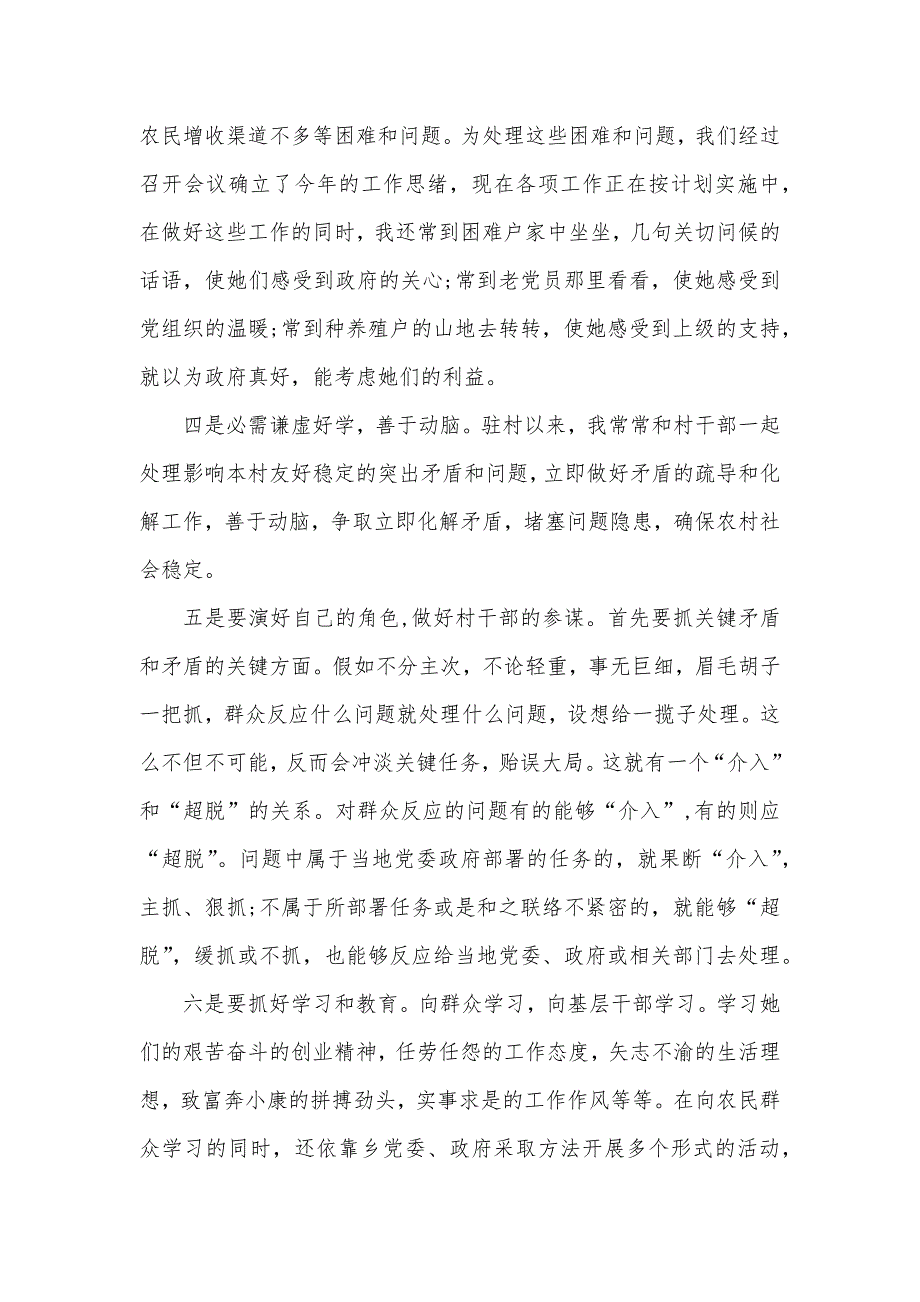 农民增收渠道不多等困难和问题。为处理这些困难和问题，我们经过
召开会议确立了今年的工作思绪，现在各项工作正在按计划实施中，
在做好这些工作的同时，我还常到困难户家中坐坐，几句关切问候的
话语，使她们感受到政府的关心;常到老党员那里看看，使她感受到
党组织的温暖;常到种养殖户的山地去转转，使她感受到上级的支持，
就以为政府真好，能考虑她们的利益。
四是必需谦虚好学，善于动脑。驻村以来，我常常和村干部一起
处理影响本村友好稳定的突出矛盾和问题，立即做好矛盾的疏导和化
解工作，善于动脑，争取立即化解矛盾，堵塞问题隐患，确保农村社
会稳定。
五是要演好自己的角色,做好村干部的参谋。首先要抓关键矛盾
和矛盾的关键方面。假如不分主次，不论轻重，事无巨细，眉毛胡子
一把抓，群众反应什么问题就处理什么问题，设想给一揽子处理。这
么不但不可能，反而会冲淡关键任务，贻误大局。这就有一个“介入”
和“超脱”的关系。对群众反应的问题有的能够“介入”,有的则应
“超脱”。问题中属于当地党委政府部署的任务的，就果断“介入”，
主抓、狠抓;不属于所部署任务或是和之联络不紧密的，就能够“超
脱”，缓抓或不抓，也能够反应给当地党委、政府或相关部门去处理。
六是要抓好学习和教育。向群众学习，向基层干部学习。学习她
们的艰苦奋斗的创业精神，任劳任怨的工作态度，矢志不渝的生活理
想，致富奔小康的拼搏劲头，实事求是的工作作风等等。在向农民群
众学习的同时，还依靠乡党委、政府采取方法开展多个形式的活动，